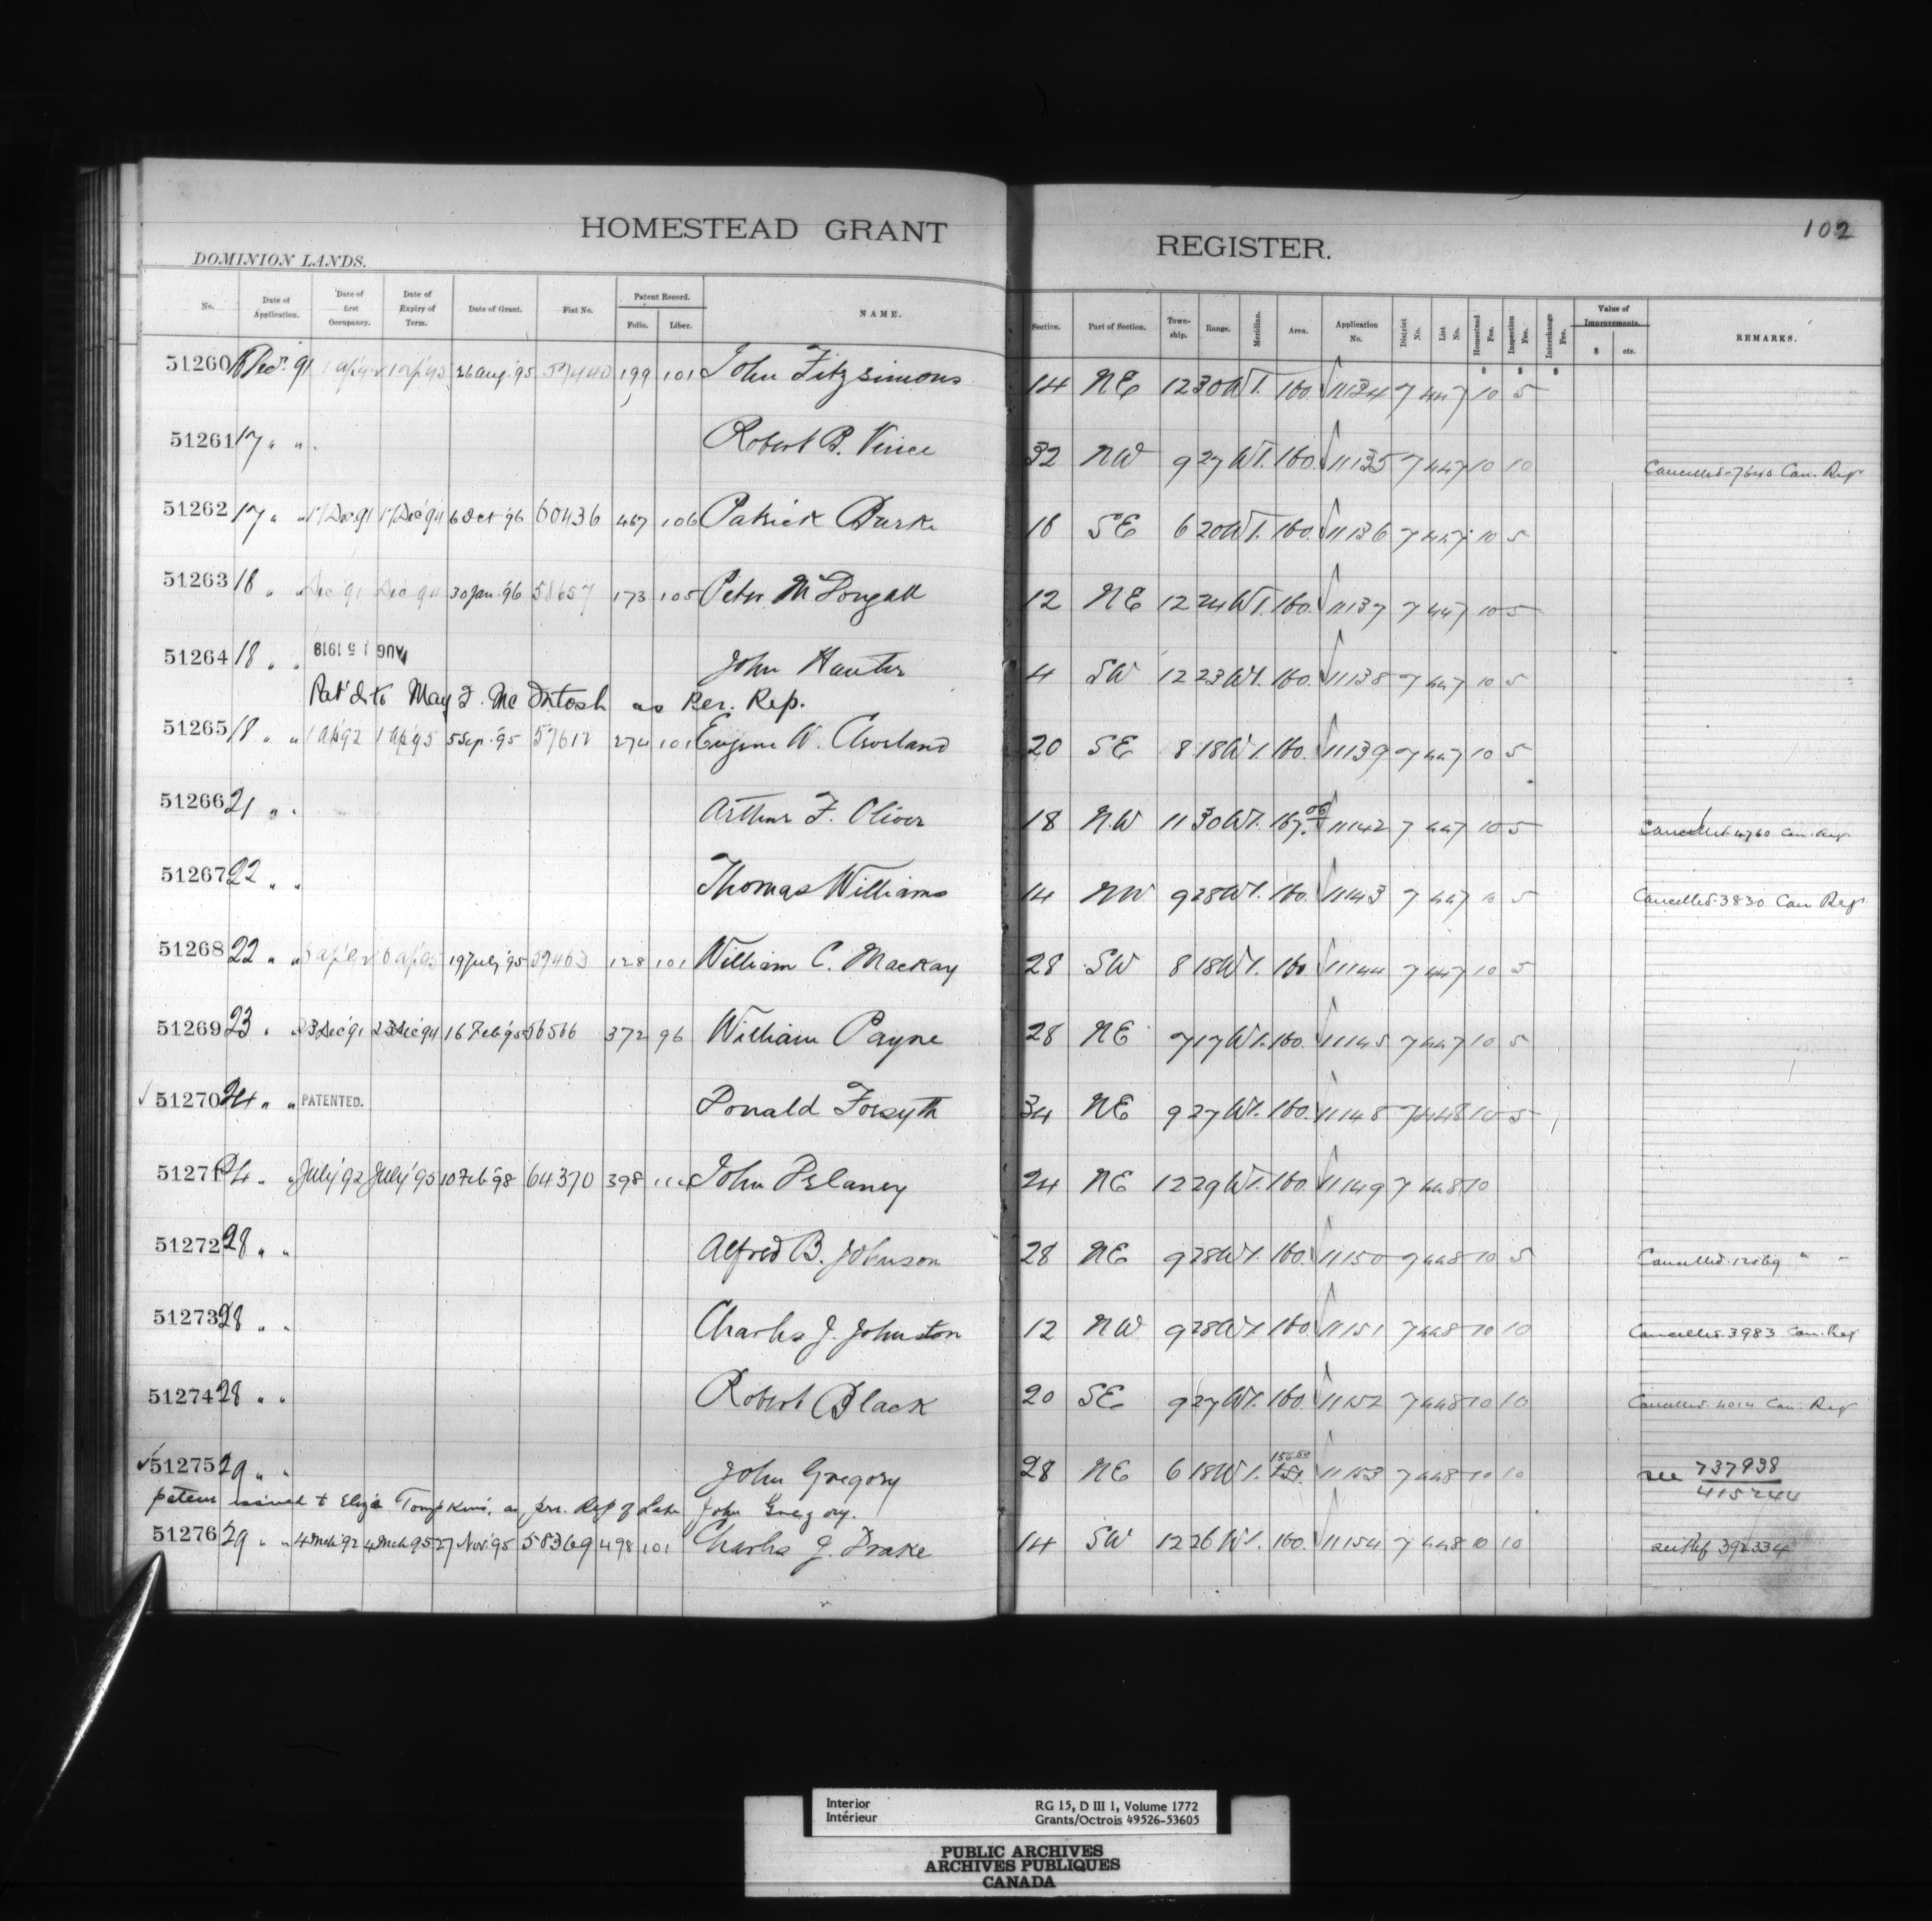 HOMESTEAD GRANT REGISTER.
102
DOMINION LANDS.
No. Date of Application. Date of first Occupancy. Date of Expiry of Term. Date of Grant. Fiat No. Patent Record. Folio. Liber. NAME. Section. Part of Section. Township. Range. Meridian. Area. Application No. District No. List No. Homestead Fee. Inspection Fee. Interchange Fee. Value of Improvements. $ cts. REMARKS.
$ $ $
51260 Dec. 91 26 Aug. '95 199 101 John Fitzsimons 14 NE 12 30 W1. 160. 11134 7 447 10 5
51261 17 " " Robert B. Vince 32 NW 9 27 W1. 160. 11135 7 447 10 10 Cancelled Can. Reg
51262 17 " " 17 Dec 91 17 Dec '94 6 Oct '96 60436 467 106 Patrick Burke 18 SE 6 20 W1. 160. 11136 7 447 10 5
51263 18 " " Dec 91 Dec 94 30 Jan. '96 58657 173 105 Peter McDougall 12 NE 12 24 W1. 160. 11137 7 447 10 5
51264 18 " " AUG 15 1919 John Hunter 4 SW 12 23 W1. 160. 11138 7 447 10 5
Pat'd to May I. McIntosh as Per. Rep.
51265 18 " " 1 Ap 92 1 Ap 95 5 Sep. '95 57612 274 101 Eugene W. Cleveland 20 SE 8 18 W1. 160. 11139 7 447 10 5
51266 21 " " Arthur F. Oliver 18 N.W 11 30 W1. 167.06 11142 7 447 10 5 Cancelled 4760 Can. Reg
51267 22 " " Thomas Williams 14 NW 9 28 W1. 160. 11143 7 447 10 5 Cancelled 3830 Can Reg.
51268 22 " " 19 July '95 128 101 William C. Mackay 28 SW 8 18 W1. 160 11144 7 447 10 5
51269 23 " " 23 Dec '91 23 Dec '94 16 Feb '95 56566 372 96 William Payne 28 NE 7 17 W1. 160. 11145 7 447 10 5
51270 24 " " PATENTED. Donald Forsyth 34 NE 9 27 W1. 160. 11148 7 448 10 5
51271 24 " " July '92 July '95 10 Feb '98 64370 398 John Delaney 24 NE 12 29 W1. 160. 11149 7 448 10
51272 28 " " Alfred B. Johnson 28 NE 9 28 W1. 160. 11150 7 448 10 5 Cancelled " "
51273 28 " " Charles J. Johnston 12 NW 9 28 W1. 160 11151 7 448 10 10 Cancelled 3983 Can. Reg
51274 28 " " Robert Black 20 SE 9 27 W1. 160. 11152 7 448 10 10 Cancelled 4014 Can. Reg
51275 29 " " John Gregory 28 NE 6 18 W1. 156.50 11153 7 448 10 10 see 737938 415244
patent issued to Eliza Tompkins, as per. Rep of Late John Gregory.
51276 29 " " 4 Mch 92 4 Mch 95 27 Nov. 95 58369 498 101 Charles J. Drake 14 SW 12 26 W1. 160. 11154 7 448 10 10 see Ref 392334
Interior
Intérieur
RG 15, D III 1, Volume 1772
Grants/Octrois 49526-53605
PUBLIC ARCHIVES
ARCHIVES PUBLIQUES
CANADA